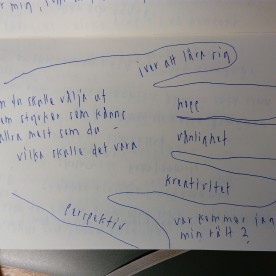 iver att lära sig
du skulle välja ut
styrkor som känns
allra mest som du -
vilka skulle det vara
hopp
vänlighet
kreativitet
perspektiv
var kommer
min rätt?